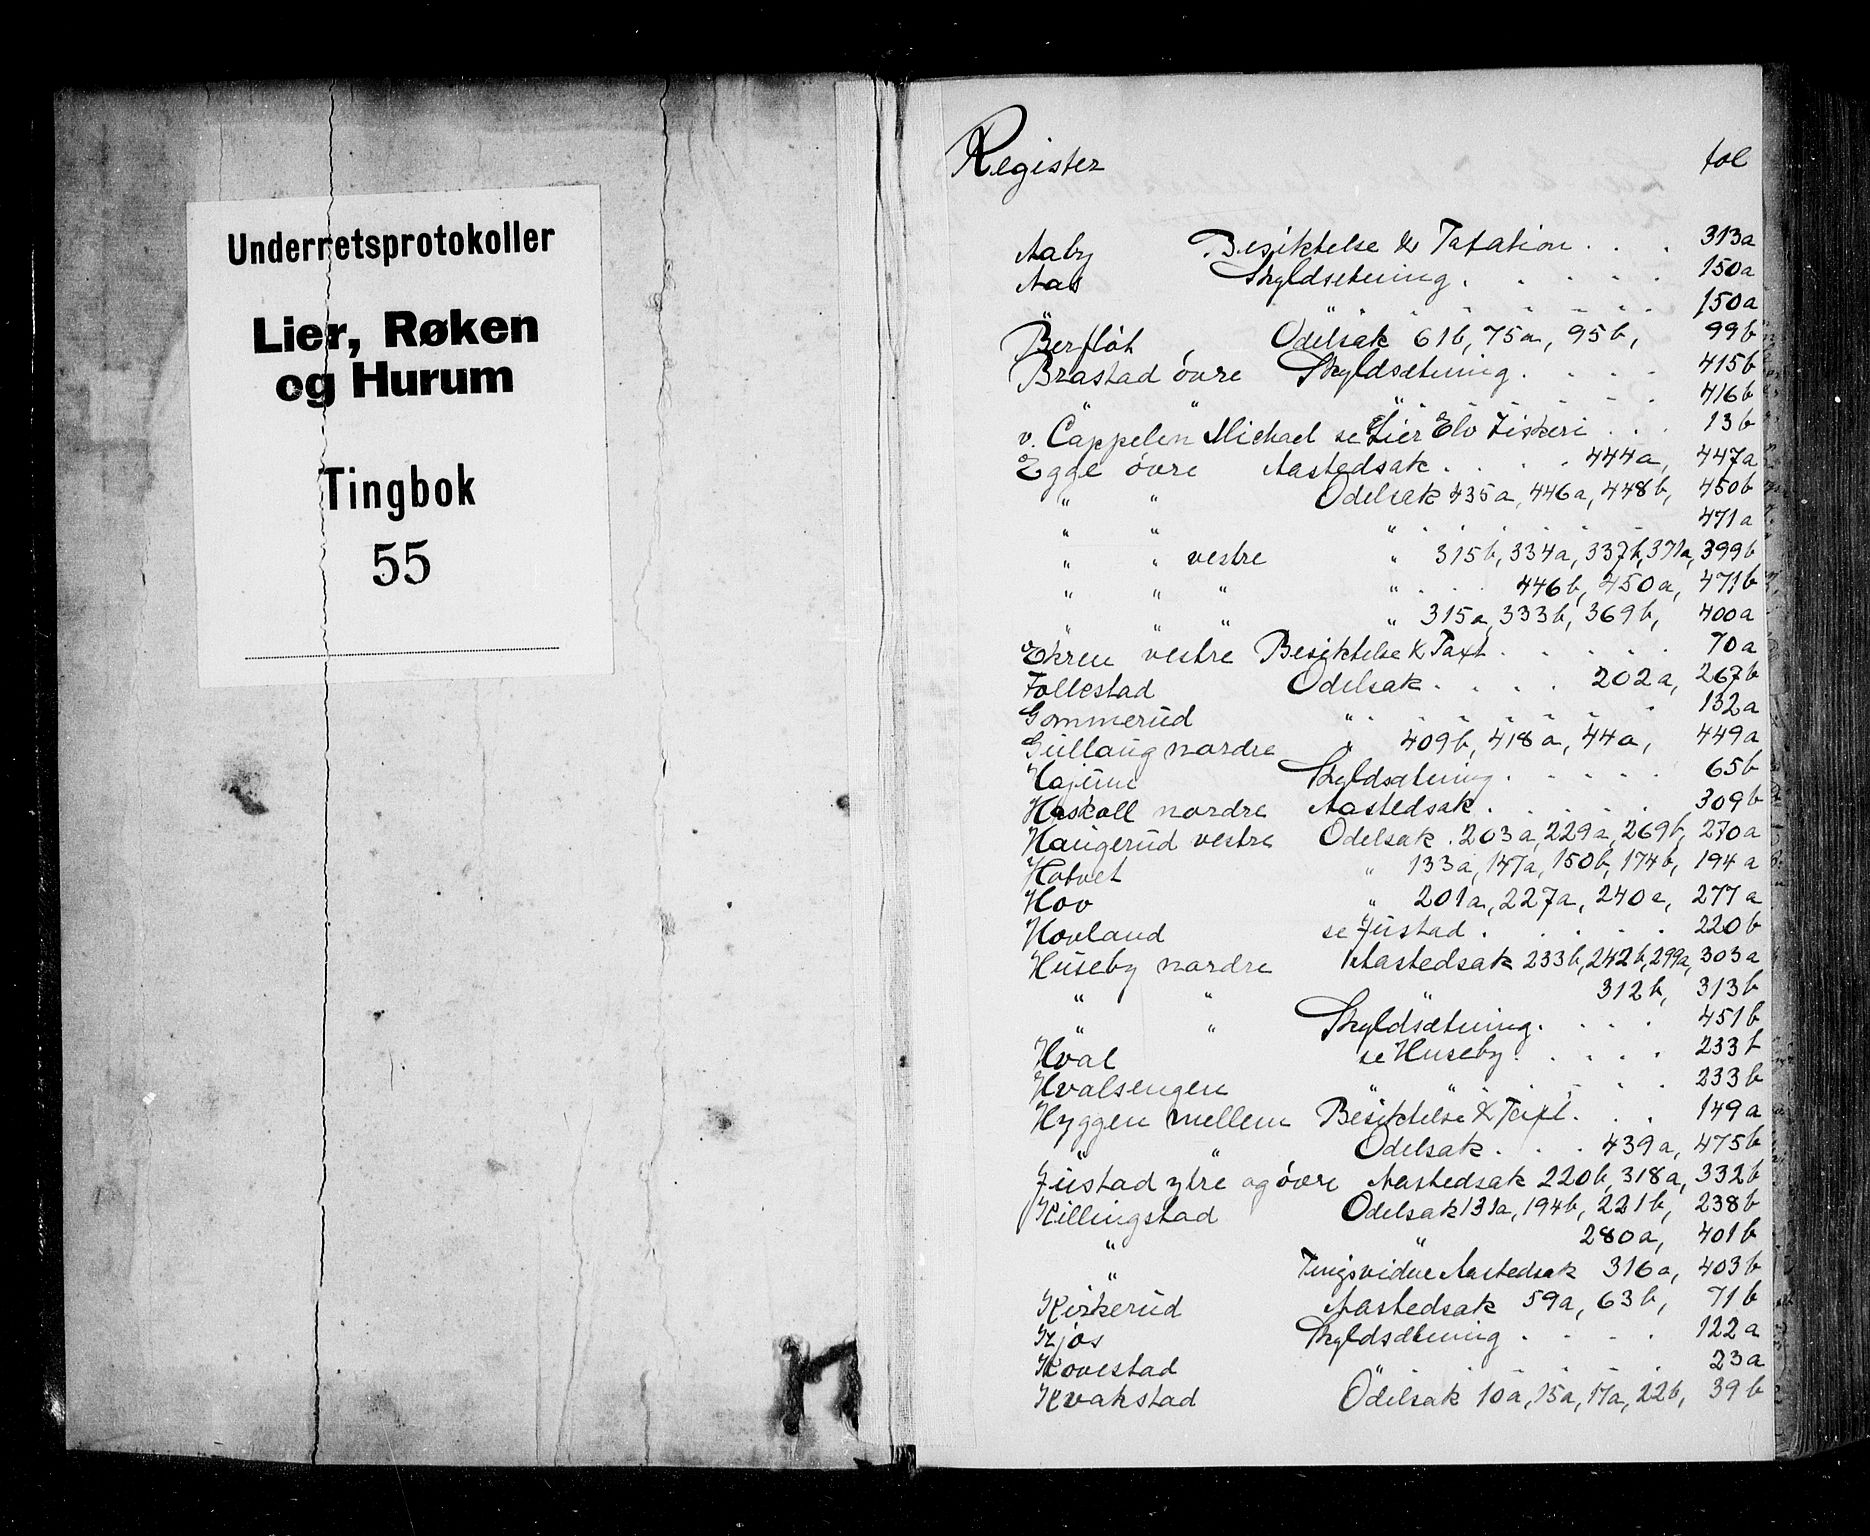 Underretsprotokoller
Lier, Røken
og Hurum
Tingbok
55
Register fol
Aaby Besiktelse & Taxation . . . 313a
Aas Skyldsetning . . . . . 150a
" " . . . . . . 150a
Berflöt Odelsak 61b, 75a, 95b, 99b
Brastad övre Skyldsætning . . . . 415b
" " " . . . . . . 416b
v. Cappelen Michael se Lier Elv Fiskeri . . . 13b
Egge övre Aastedsak . . . . 444a, 447a
" " Odelsak 435a, 446a, 448b, 450b
" " " . . . . . . 471a
" " vestre " 315b, 334a, 337b, 371a, 399b
" " " " . . . 446b, 450a, 471b
" " " " 315a, 333b, 369b, 400a
Ekren vestre Besiktelse & Taxt . . . . . . 70a
Follestad Odelsak . . . . 202a, 267b
Gommerud " . . . . . . . 132a
Gullaug nordre " 409b, 418a, 44a, 449a
Hajum Skyldsætning . . . . . 65b
Haskoll nordre Aastedsak . . . . . . 309b
Haugerud vestre Odelsak . 203a, 229a, 269b, 270a
Hotvet " 133a, 147a, 150b, 174b, 194a
Hov " 201a, 227a, 240a, 277a
Hovland se Justad . . . . . 220b
Huseby nordre Aastedsak 233b, 242b, 299a, 303a
" " " 312b, 313b
" " Skyldsætning . . . . 451b
Hval se Huseby . . . . . 233b
Hvalsengen " " . . . . . 233b
Hyggen mellem Besiktelse & Taxt . . . 149a
" " Odelsak . . . 439a, 475b
Justad ytre og övre Aastedsak 220b, 318a, 332b
Killingstad Odelsak 131a, 194b, 221b, 238b
" " 280a, 401b
" Tingsvidne Aastedsak 316a, 403b
Kirkerud Aastedsak 59a, 63b, 71b
Kjos Skyldsætning . . . . 122a
Kovestad " . . . . . . 23a
Kvakstad Odelsak 10a, 15a, 17a, 22b, 39b